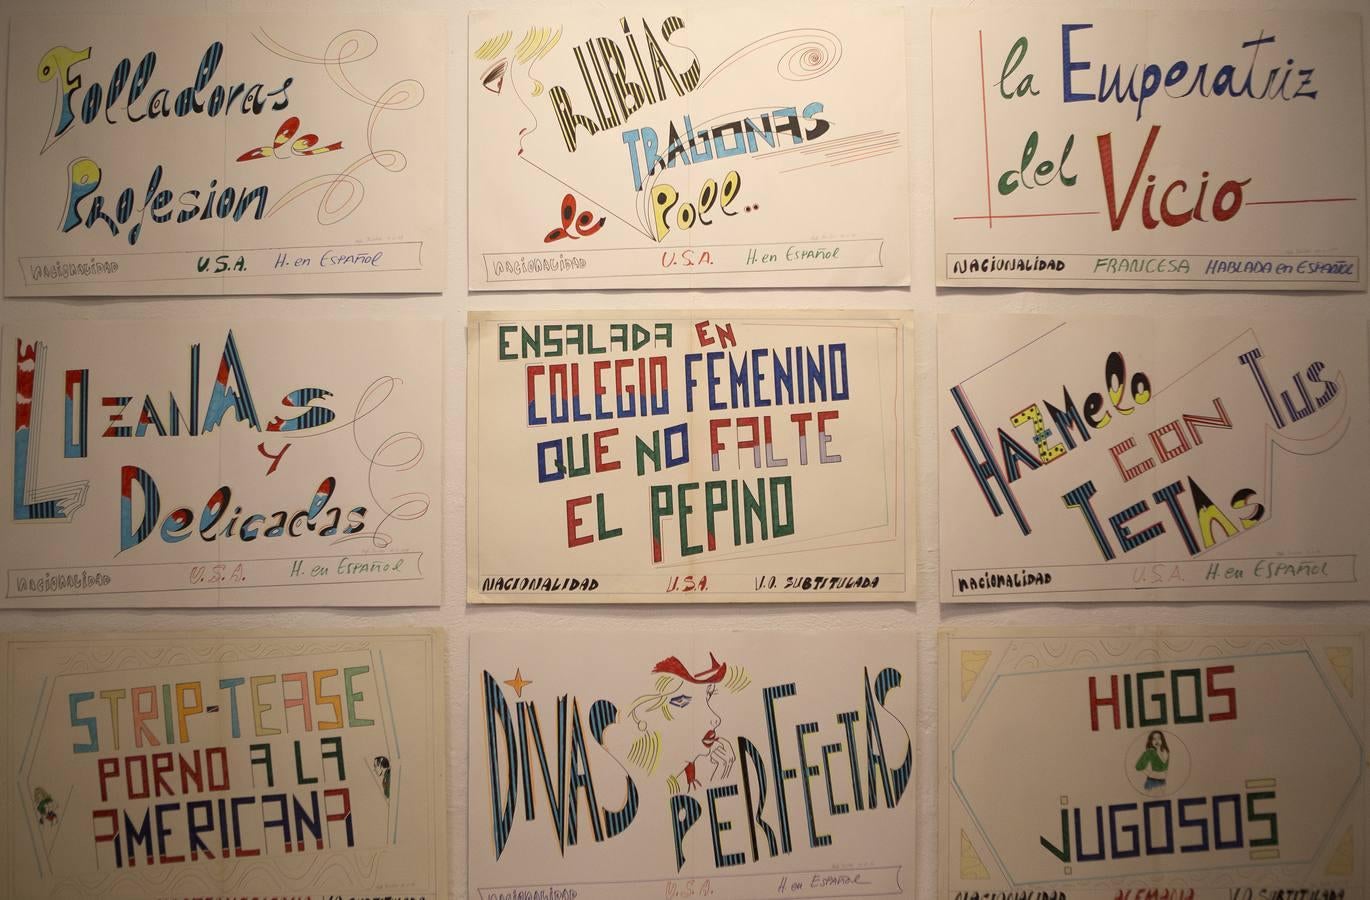 Folladoras
de
Profesion
NACIONALIDAD U.S.A. H. en ESPAÑOL
RUBIAS
TRAGONAS
de Poll..
NACIONALIDAD U.S.A. H. en ESPAÑOL
la Emperatriz
del Vicio
NACIONALIDAD FRANCESA HABLADA en ESPAÑOL
LOZANAS
y
Delicadas
NACIONALIDAD U.S.A. H. en ESPAÑOL
ENSALADA EN
COLEGIO FEMENINO
QUE NO FALTE
EL PEPINO
NACIONALIDAD U.S.A. V.O. SUBTITULADA
HAZMelo
CON TUS
TETAS
NACIONALIDAD U.S.A. H. en ESPAÑOL
STRIP-TEASE
PORNO A LA
AMERICANA
V.O. SUBTITULADA
DIVAS
PERFECTAS
NACIONALIDAD U.S.A. H en ESPAÑOL
HIGOS
JUGOSOS
NACIONALIDAD ALEMANIA V.O. SUBTITULADA